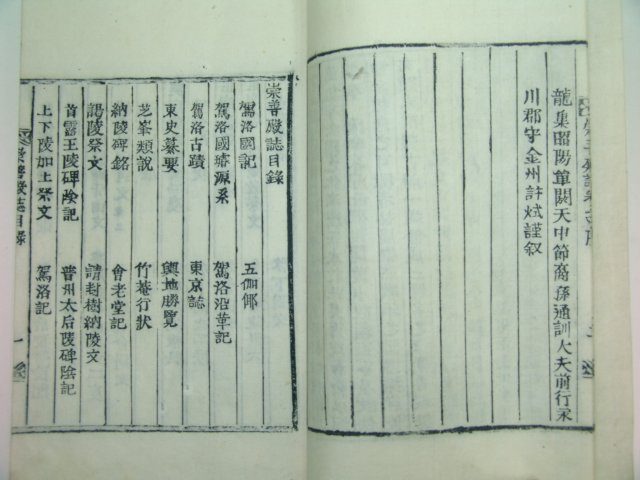 龍集昭陽單閼天中節裔孫通訓大夫前行永
川郡守金州許烒謹叙
崇善殿誌目錄
駕洛國記 五伽倻
駕洛國璿源系 駕洛沿革記
駕洛古蹟 東京誌
東史纂要 輿地勝覽
芝峯類說 竹菴行狀
納陵碑銘 會老堂記
諸陵祭文 請封樹納陵文
首露王陵碑陰記 普州太后陵碑陰記
上下陵加上祭文 駕洛記
崇善殿誌目錄 一